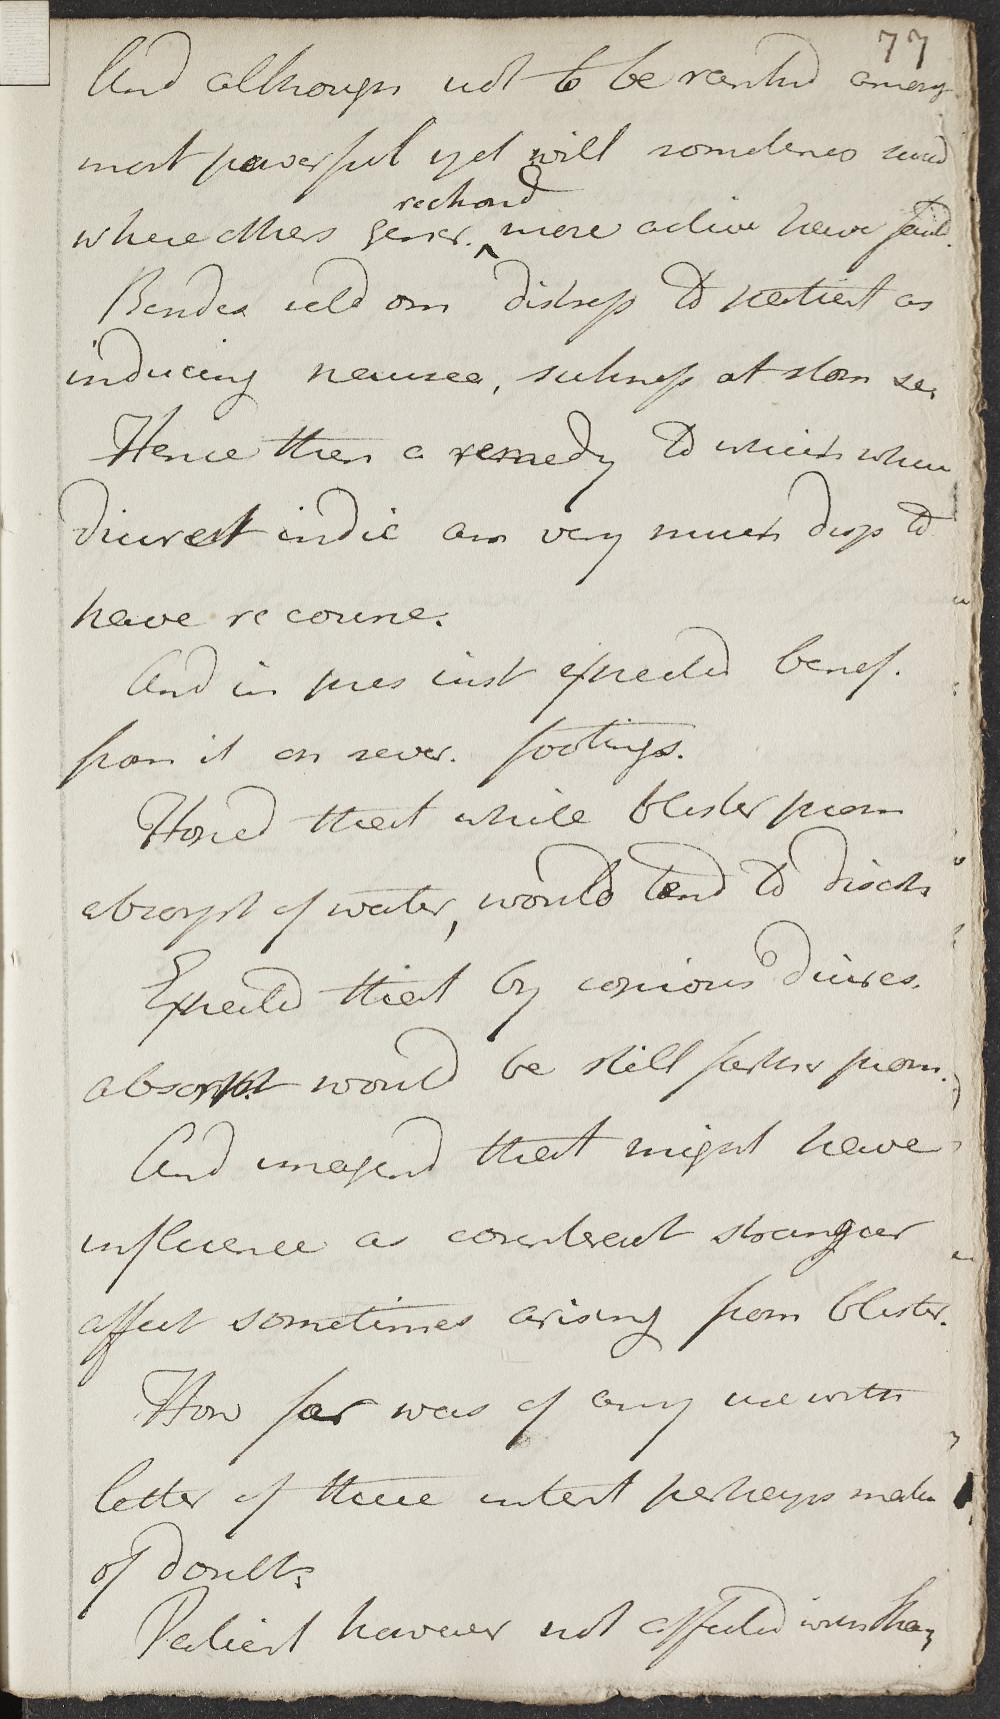 77
And although not to be rankd among
most powerful yet will sometimes succd
reckond
where others gener. ^ more active have faild.
Besides seldom distress to patient as
inducing nausea, sickness at stom &c.
Hence then a remedy to which when
diuret indic am very much disp to
have recourse.
And in pres inst expected benef.
from it on sever. footings.
Hoped that while blister prom
absorpt of water, would tend to disch
Expected that by copious diures.
absorpt would be still farther prom.
And imagind that might have
influence as counteract strangur
affect sometimes arising from blister.
How far was of any use with
latter of these intent perhaps matter
of doubt.
Patient however not affected with